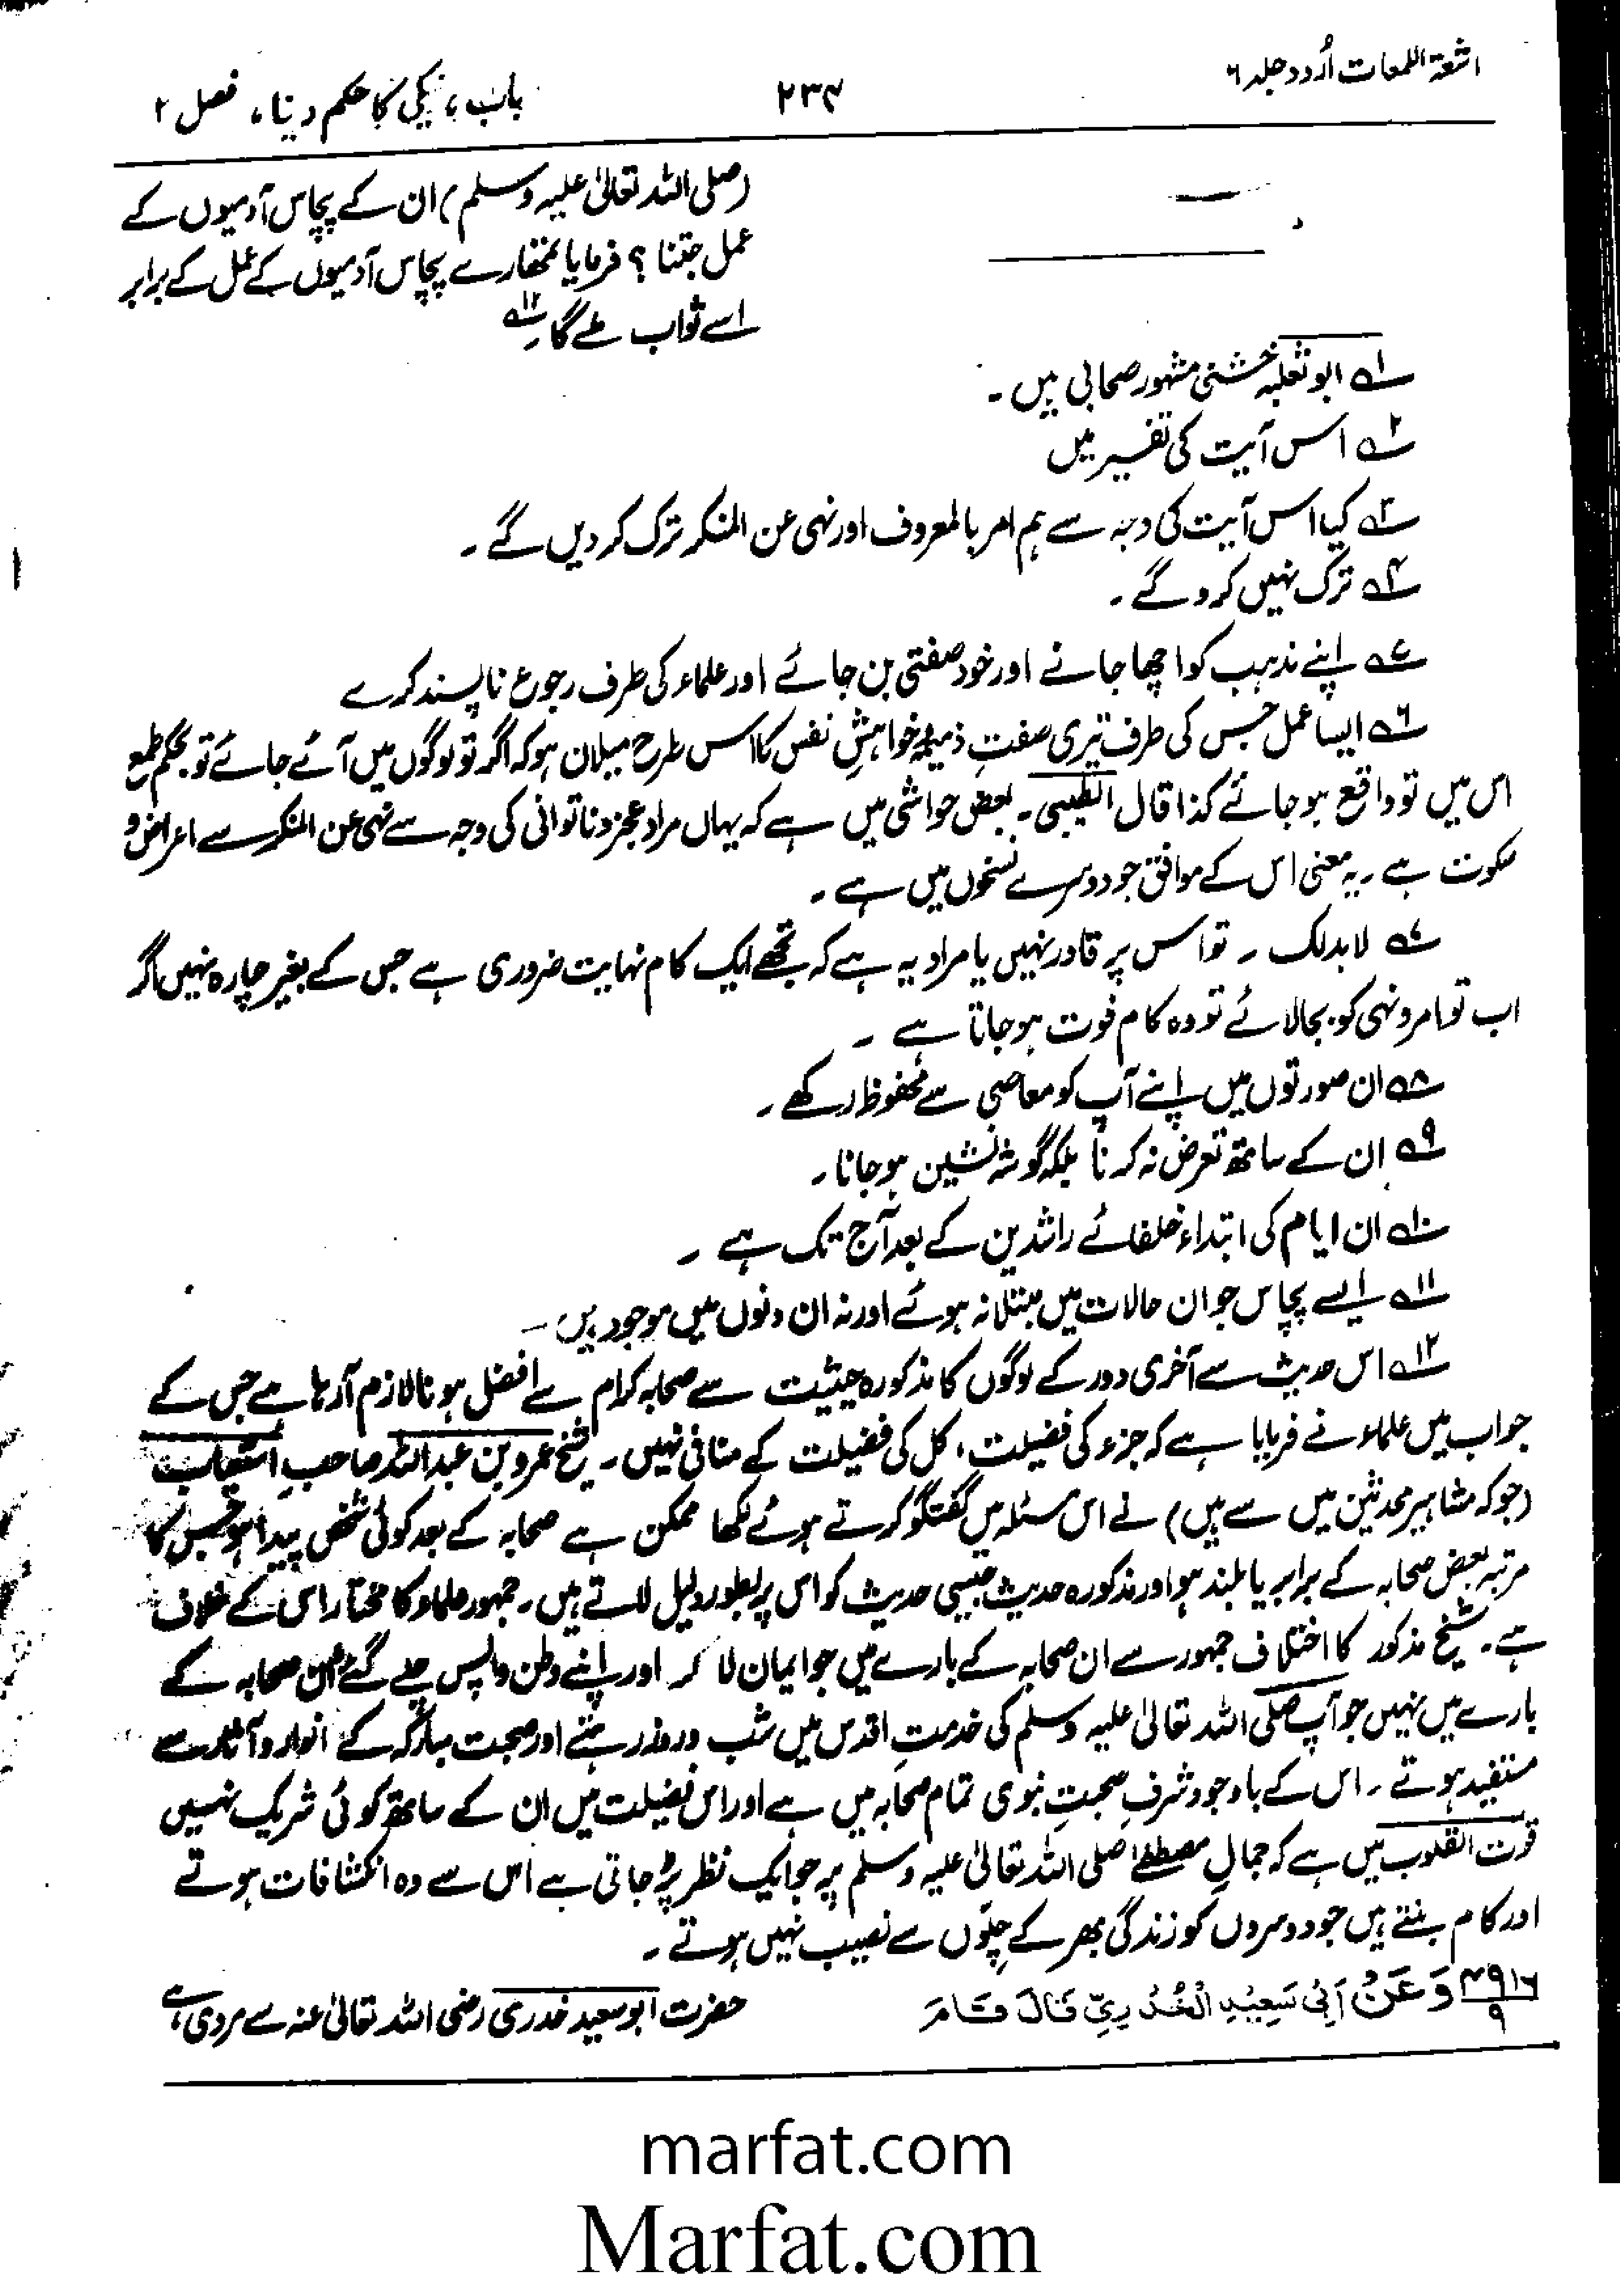 اشعۃ اللمعات اُردو جلد ۶
۲۳۴
باب، نیکی کا حکم دینا، فصل ۲
(صلی اللہ تعالیٰ علیہ وسلم) ان کے پچاس آدمیوں کے
عمل جتنا ؟ فرمایا تمھارے پچاس آدمیوں کے عمل کے برابر
اسے ثواب ملے گا۔ ۱۲ے
۱ے ابو ثعلبہ خشنی مشہور صحابی ہیں۔
۲ے اس آیت کی تفسیر میں
۳ے کیا اس آیت کی وجہ سے ہم امر بالمعروف اور نہی عن المنکر ترک کر دیں گے۔
۴ے ترک نہیں کرو گے۔
۵ے اپنے مذہب کو اچھا جانے اور خود مفتی بن جائے اور علماء کی طرف رجوع ناپسند کرے
۶ے ایسا عمل جس کی طرف تیری صفتِ ذمیمہ خواہشِ نفس کا اس طرح میلان ہو کہ اگر تو لوگوں میں آئے جائے تو بحکم طبع
اس میں تو واقع ہو جائے کذا قال الطیبی۔ بعض حواشی میں ہے کہ یہاں مراد عجز و ناتوانی کی وجہ سے نہی عن المنکر سے اعراض و
سکوت ہے۔ یہ معنی اس کے موافق جو دوسرے نسخوں میں ہے۔
۷ے لا بد لک۔ تو اس پر قادر نہیں یا مراد یہ ہے کہ تجھے ایک کام نہایت ضروری ہے جس کے بغیر چارہ نہیں اگر
اب تو امر و نہی کو بجا لائے تو وہ کام فوت ہو جاتا ہے۔
۸ے ان صورتوں میں اپنے آپ کو معاصی سے محفوظ رکھے۔
۹ے ان کے ساتھ تعرض نہ کرنا بلکہ گوشہ نشین ہو جانا۔
۱۰ے ان ایام کی ابتداء خلفائے راشدین کے بعد آج تک ہے۔
۱۱ے ایسے پچاس جو ان حالات میں مبتلا نہ ہوئے اور نہ ان دنوں میں موجود ہیں۔
۱۲ے اس حدیث سے آخری دور کے لوگوں کا مذکورہ حیثیت سے صحابہ کرام سے افضل ہونا لازم آ رہا ہے جس کے
جواب میں علماء نے فرمایا ہے کہ جزء کی فضیلت، کل کی فضیلت کے منافی نہیں۔ شیخ عمرو بن عبداللہ صاحبِ استیعاب
(جو کہ مشاہیر محدثین میں سے ہیں) نے اس مسئلہ میں گفتگو کرتے ہوئے لکھا ممکن ہے صحابہ کے بعد کوئی شخص پیدا ہو جس کا
مرتبہ بعض صحابہ کے برابر یا بلند ہو اور مذکورہ حدیث جیسی حدیث کو اس پر بطور دلیل لاتے ہیں۔ جمہور علماء کا مختار اس کے خلاف
ہے۔ شیخ مذکور کا اختلاف جمہور سے ان صحابہ کے بارے میں جو ایمان لا کر اور اپنے وطن واپس چلے گئے ان صحابہ کے
بارے میں نہیں جو آپ صلی اللہ تعالیٰ علیہ وسلم کی خدمتِ اقدس میں شب و روز رہتے اور صحبت مبارکہ کے انوار و آثار سے
مستفید ہوتے۔ اس کے باوجود شرفِ صحبتِ نبوی تمام صحابہ میں ہے اور اس فضیلت میں ان کے ساتھ کوئی شریک نہیں
قوت القلوب میں ہے کہ جمالِ مصطفےٰ صلی اللہ تعالیٰ علیہ وسلم پر جو ایک نظر پڑ جاتی ہے اس سے وہ انکشافات ہوتے
اور کام بنتے ہیں جو دوسروں کو زندگی بھر کے چلّوں سے نصیب نہیں ہوتے۔
۴۹۱۶/۹ وَعَنْ اَبِیْ سَعِیْدِ الْخُدْرِیِّ قَالَ قَامَ
حضرت ابو سعید خدری رضی اللہ تعالیٰ عنہ سے مروی ہے،
marfat.com
Marfat.com